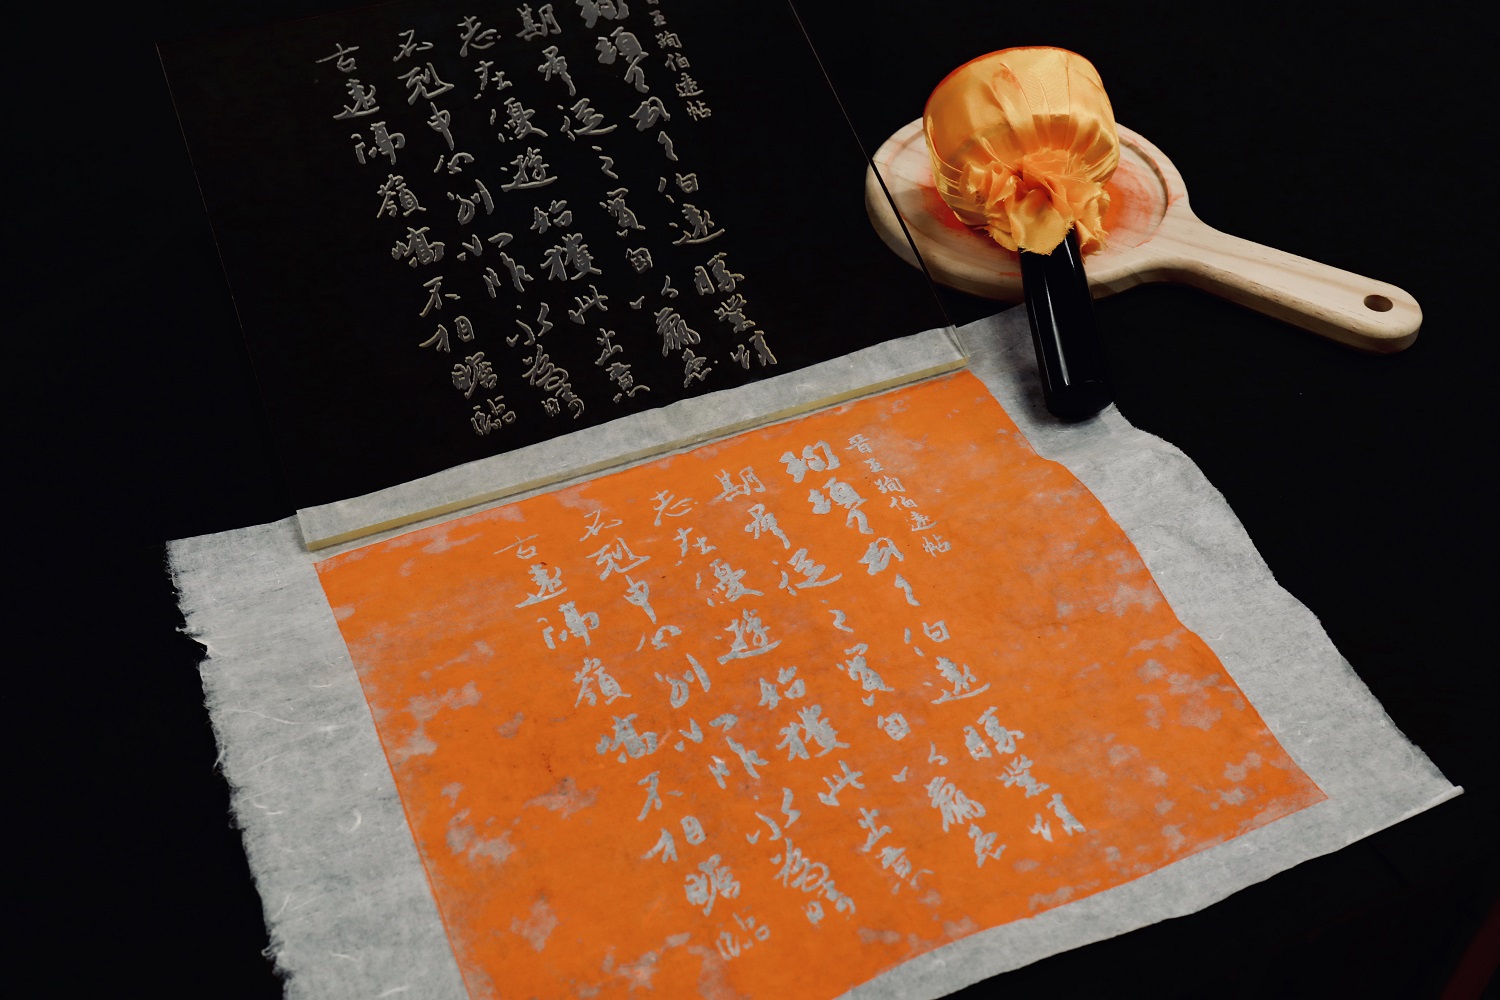 晉王珣伯遠帖
珣頓首頓首伯遠勝業情
期群從之寶自以羸患
志在優遊始獲此出意
不剋申分別如昨永為疇
古遠隔嶺嶠不相瞻臨
晉王珣伯遠帖
珣頓首頓首伯遠勝業情
期群從之寶自以羸患
志在優遊始獲此出意
不剋申分別如昨永為疇
古遠隔嶺嶠不相瞻臨